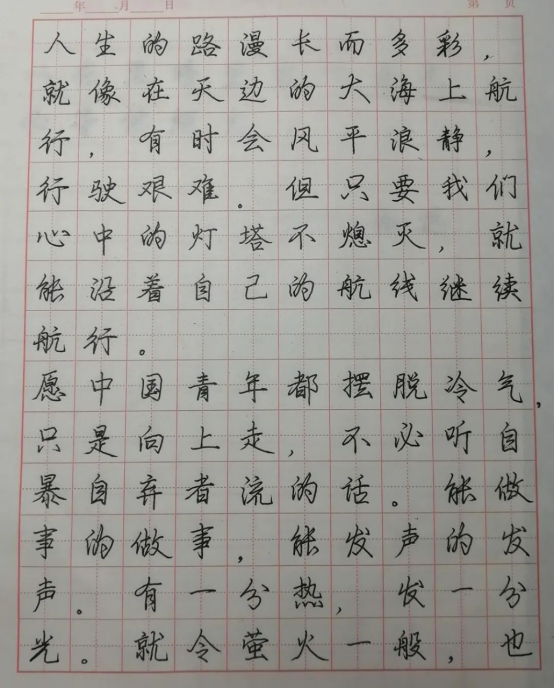 年 月 日 第 页
人生的路漫长而多彩，
就像在天边的大海上航
行，有时会风平浪静，
行驶艰难。但只要我们
心中的灯塔不熄灭，就
能沿着自己的航线继续
航行。
愿中国青年都摆脱冷气，
只是向上走，不必听自
暴自弃者流的话。能做
事的做事，能发声的发
声。有一分热，发一分
光。就令萤火一般，也